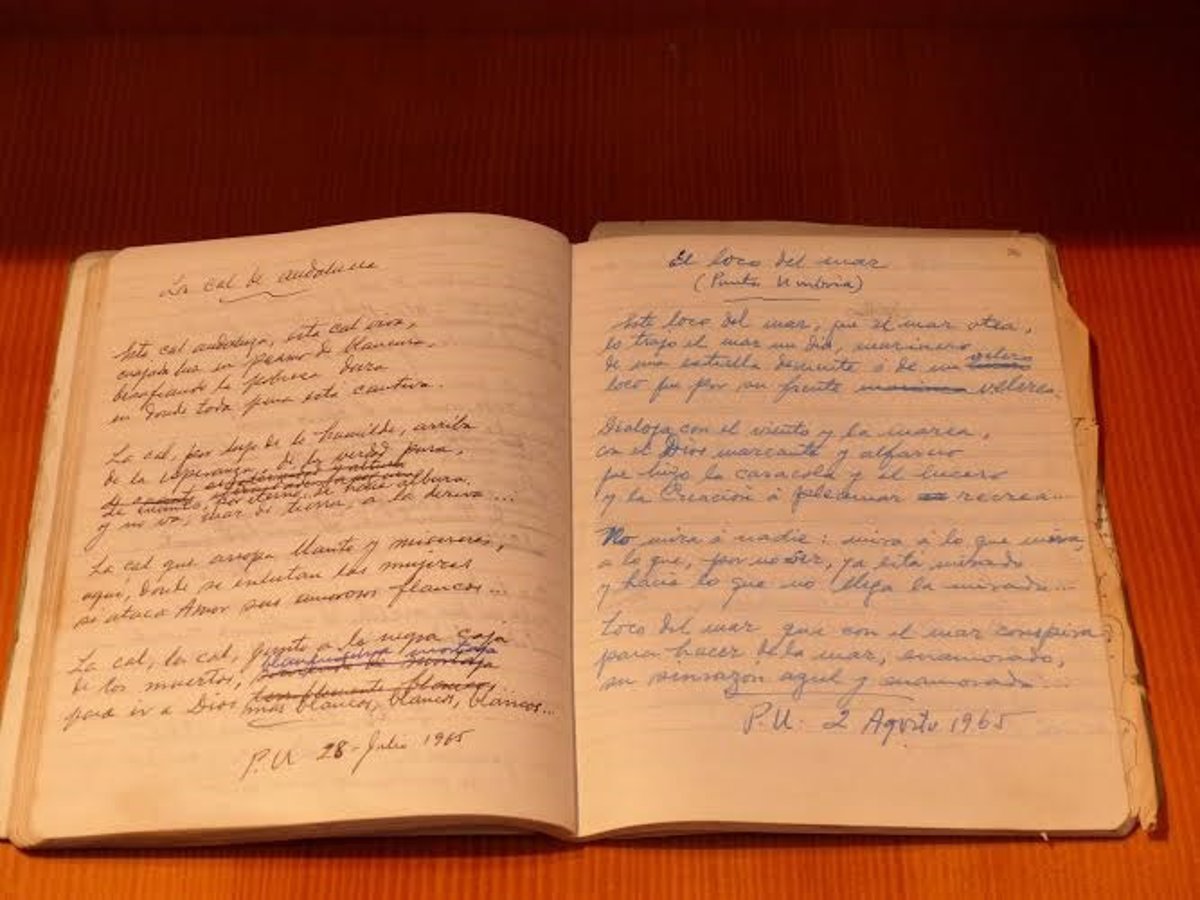 La cal de andaluza
Esta cal andaluza, esta cal viva,
cuajada luz en pasmo de blancura,
desafiando la pobreza dura
en donde toda pena está cautiva.
La cal, por lujo de lo humilde, arriba
de la esperanza, de la verdad pura,
por eterno, se hace albura.
y no va, mar de tierra, a la deriva...
La cal que arropa llanto y misereres,
aquí, donde se enlutan las mujeres
si ataca Amor sus amorosos flancos...
La cal, la cal, junto a la negra caja
de los muertos, blanquísima mortaja
para ir a Dios más blancos, blancos, blancos...
P.U. 28-Julio 1965
El loco del mar
(Punta Umbría)
Este loco del mar, que el mar otea,
lo trajo el mar un día, marinero
de una estrella demente ó de un velero
loco que por su frente velerea.
Dialoga con el viento y la marea,
con el Dios mareante y alfarero
que hizo la caracola y el lucero
y la Creación á pleamar recrea...
No mira á nadie: mira á lo que mira,
a lo que, por no ser, ya está mirado
y hacia lo que no llega la mirada...
Loco del mar que con el mar conspira
para hacer de la mar, enamorado,
su sinrazón azul y enamorada...
P.U. 2 Agosto 1965